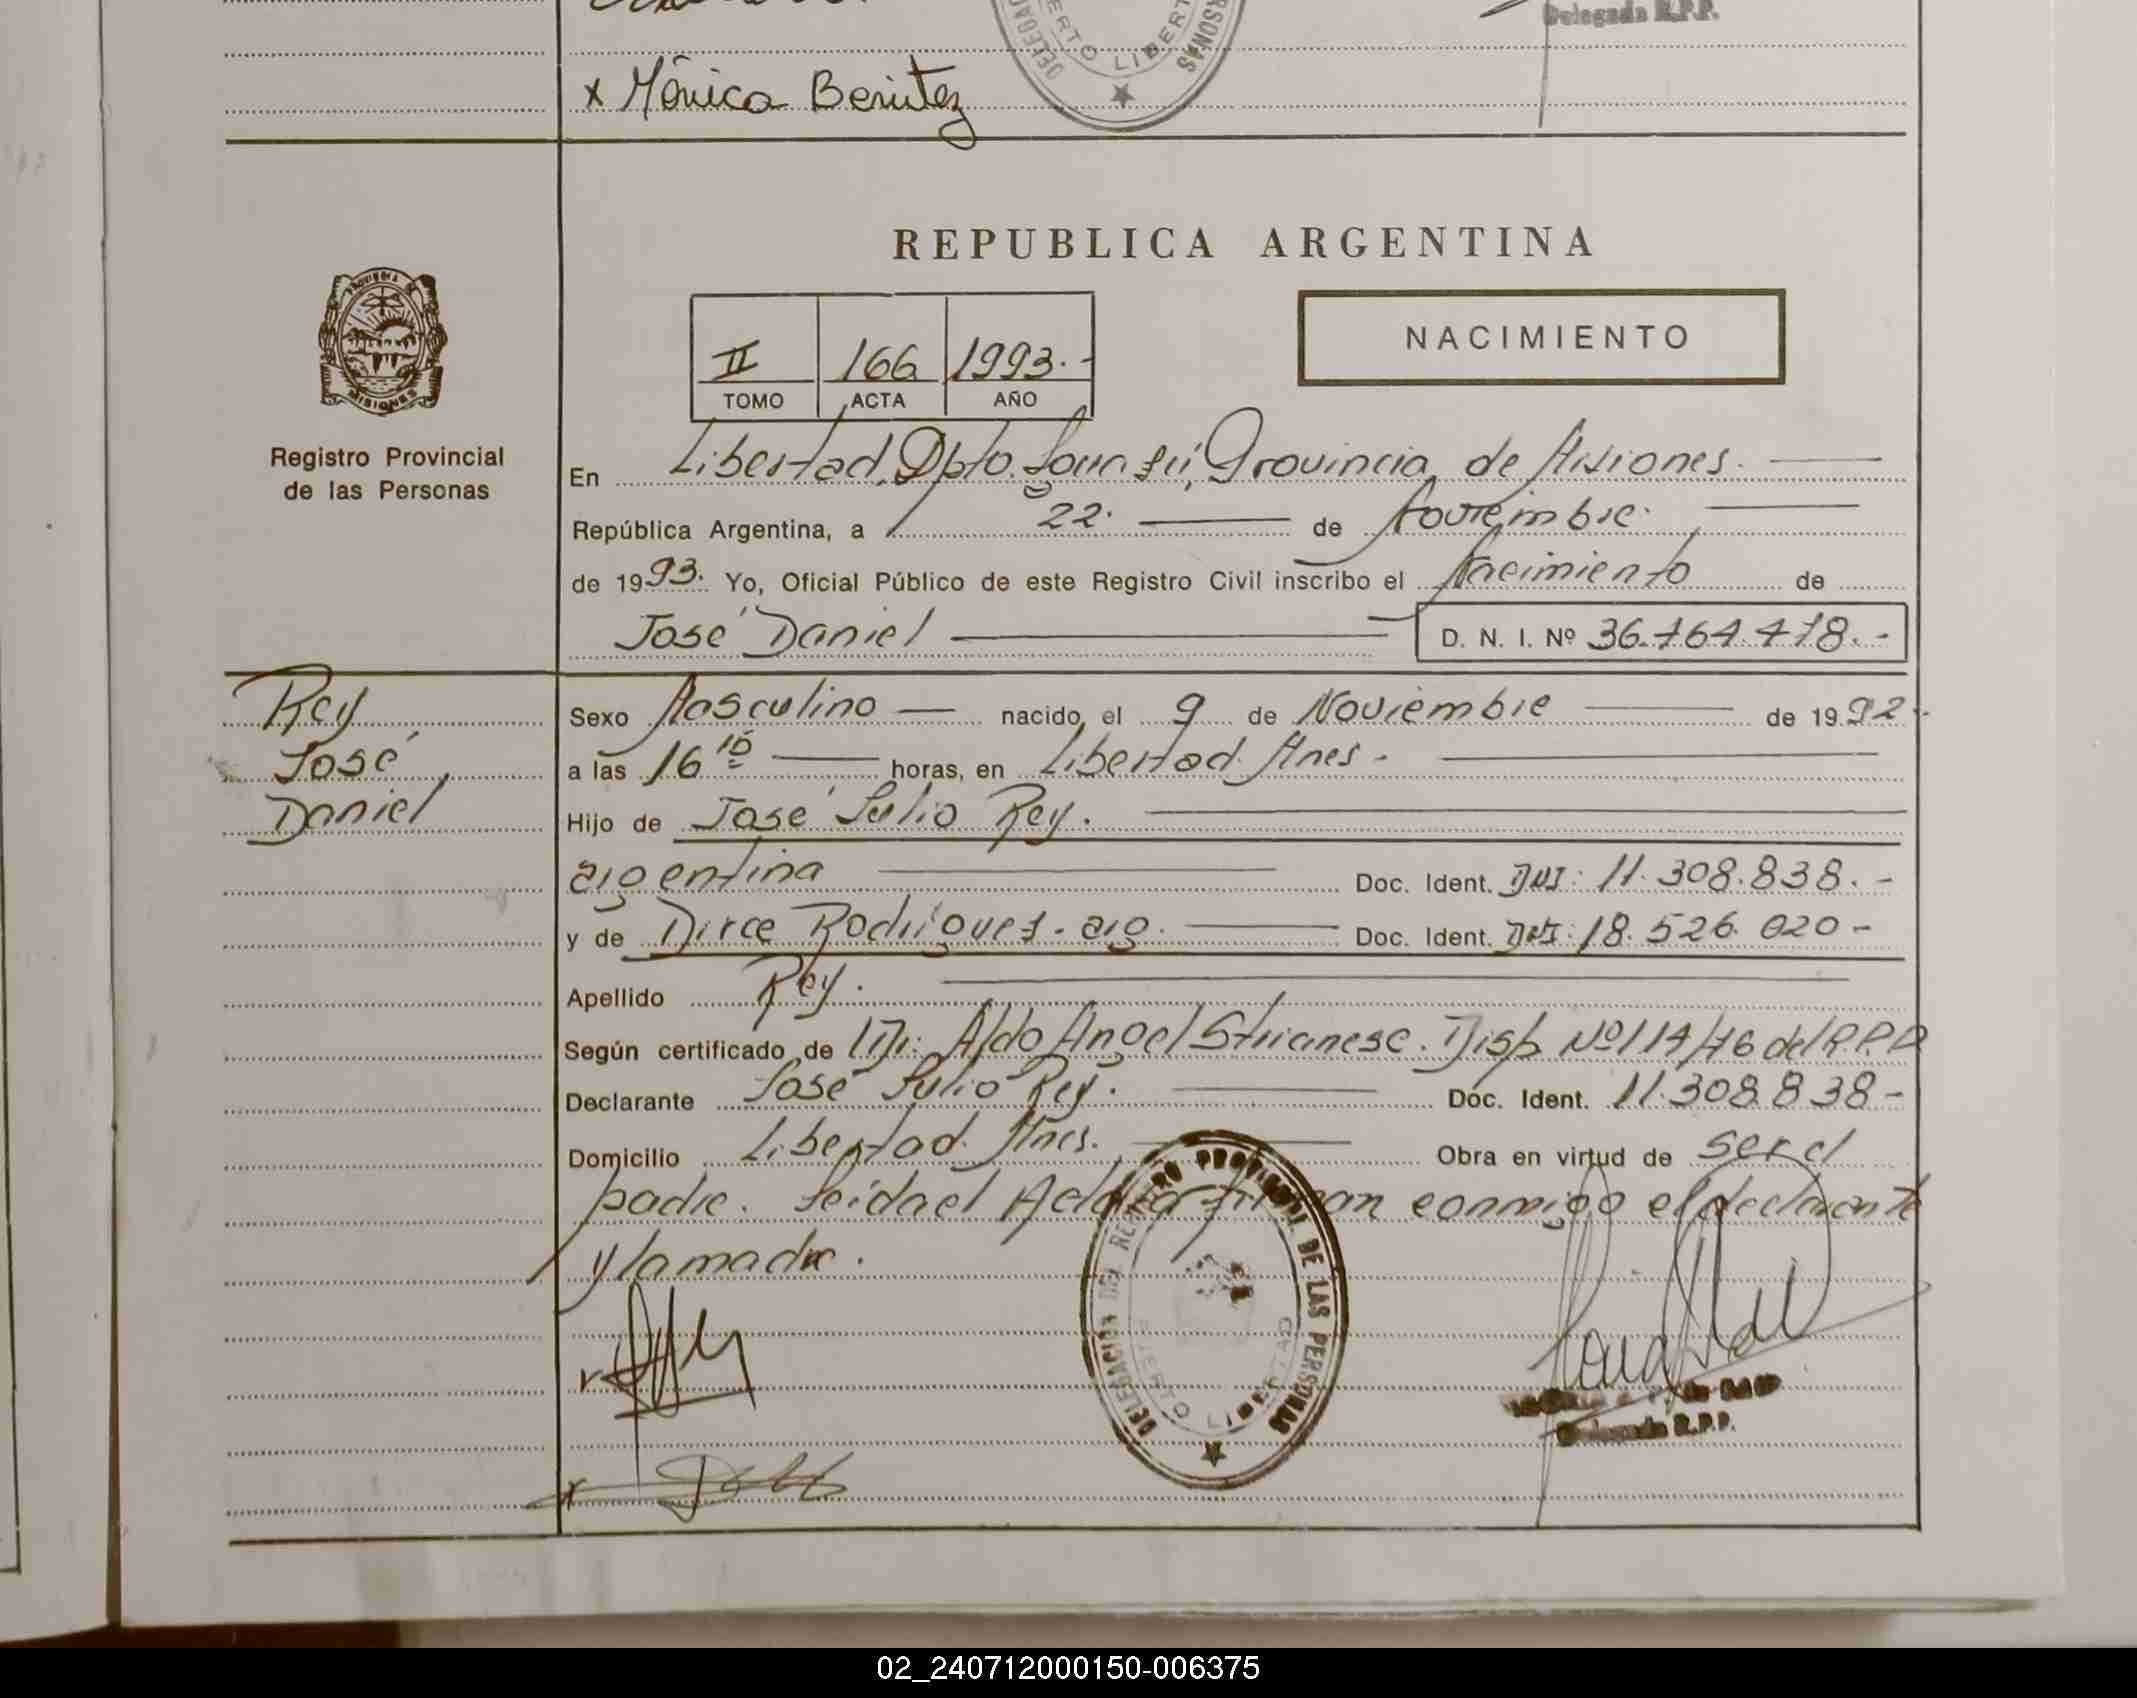 Delegada R.P.P.
x Mónica Benitez
REPUBLICA ARGENTINA
NACIMIENTO
II 166 1993.-
TOMO ACTA AÑO
Registro Provincial
de las Personas
MISIONES
En Libertad, Dpto. Iguazú, Provincia de Misiones.
República Argentina, a 22. de Noviembre.
de 1993. Yo, Oficial Público de este Registro Civil inscribo el Nacimiento de
José Daniel D. N. I. Nº 36.764.478.-
Rey
José
Daniel
Sexo Masculino nacido el 9 de Noviembre de 1992.
a las 16 15 horas, en Libertad Mnes.
Hijo de José Julio Rey.
argentina Doc. Ident. DNI: 11.308.838.-
y de Dirce Rodrígues. arg. Doc. Ident. DNI: 18.526.020-
Apellido Rey.
Según certificado de Dr: Aldo Angel Disp. Nº 114/76 del R.P.P
Declarante José Julio Rey. Doc. Ident. 11.308.838-
Domicilio Libertad. Mnes. Obra en virtud de ser el
padre. Leída el Acta firman conmigo el declarante
y la madre.
DELEGACION DEL REGISTRO PROVINCIAL DE LAS PERSONAS
PUERTO LIBERTAD
Delegada R.P.P.
02_240712000150-006375